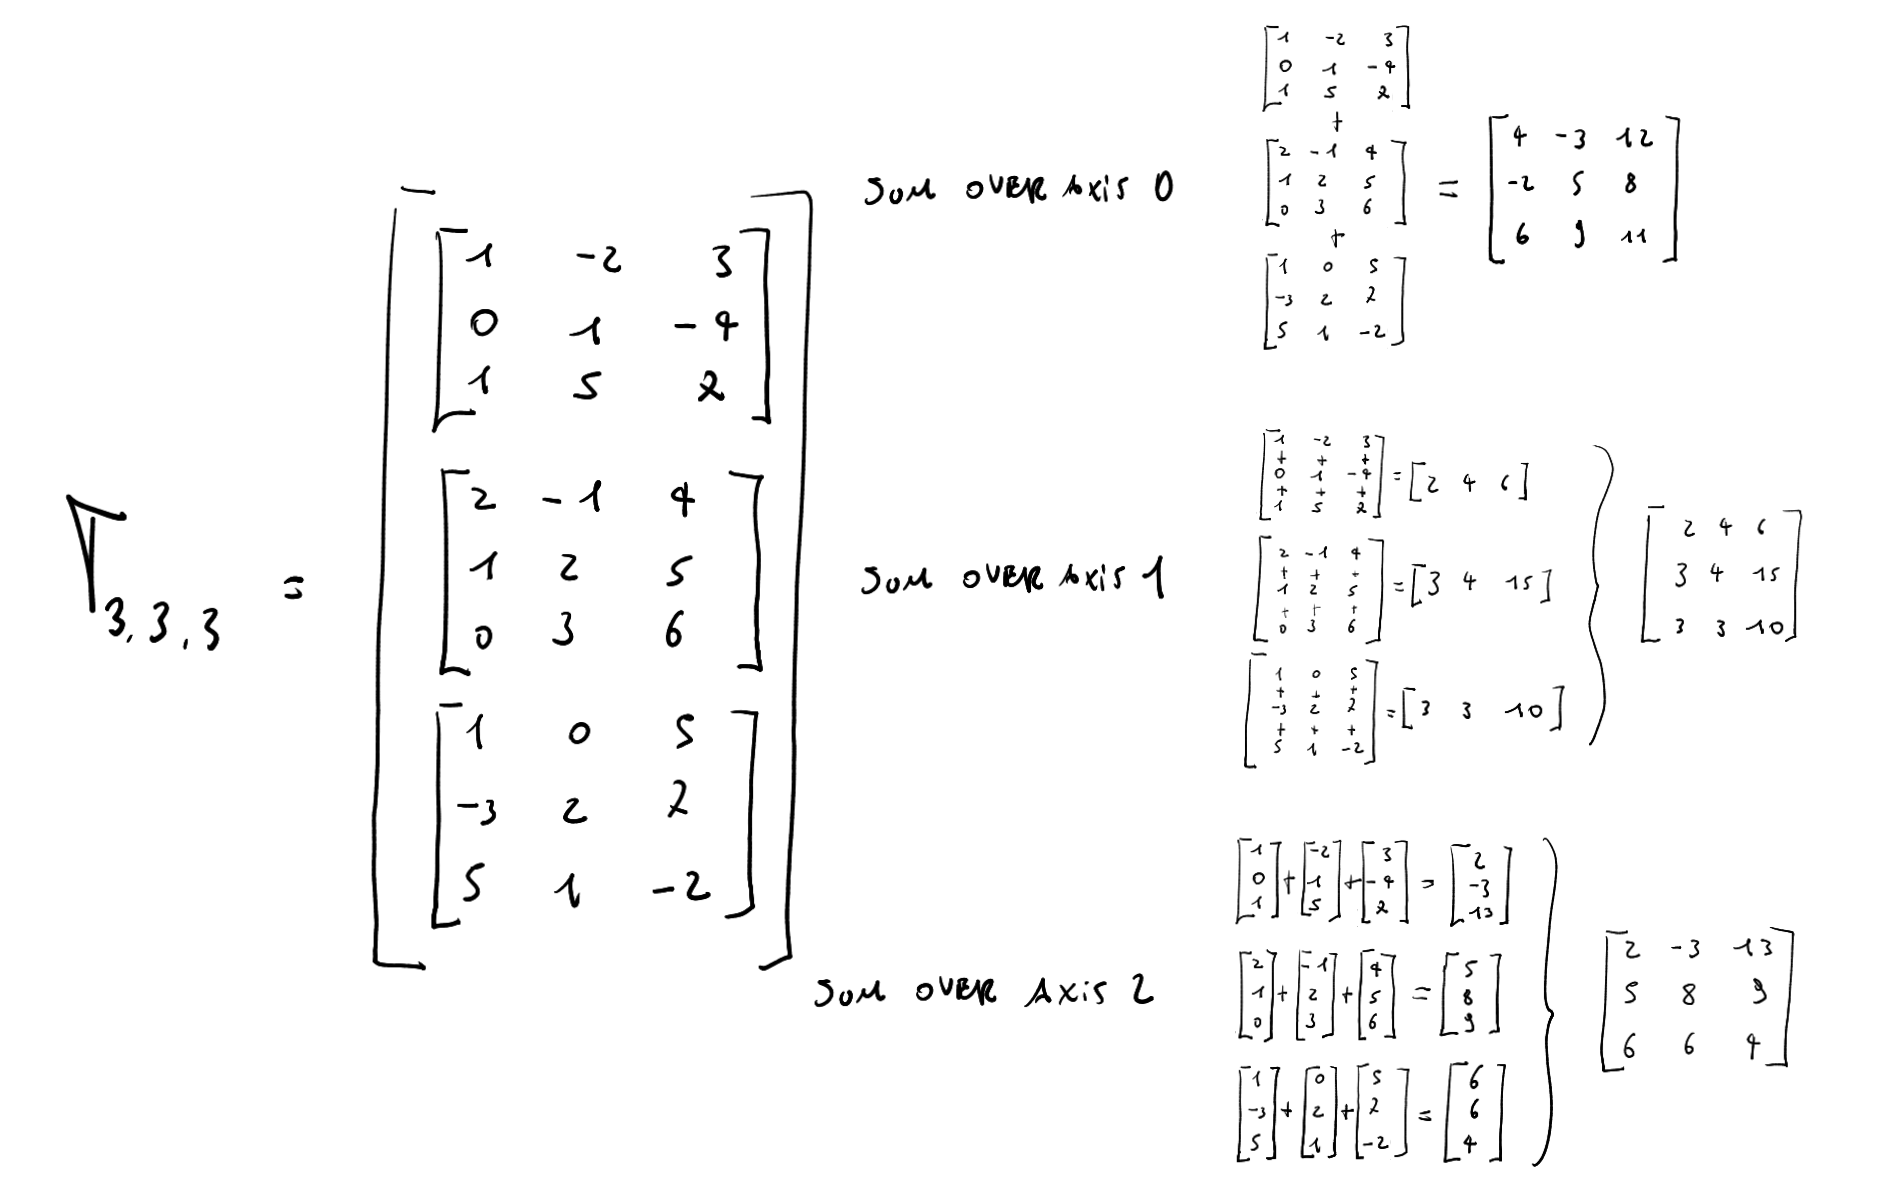 T3,3,3 =
1 -2 3
0 1 -4
1 5 2
2 -1 4
1 2 5
0 3 6
1 0 5
-3 2 7
5 1 -2
SUM OVER AXIS 0
1 -2 3
0 1 -4
1 5 2
+
2 -1 4
1 2 5
0 3 6
+
1 0 5
-3 2 7
5 1 -2
=
4 -3 12
-2 5 8
6 9 11
SUM OVER AXIS 1
1 -2 3
+ + +
0 1 -4
+ + +
1 5 2
= [2 4 6]
2 -1 4
+ + +
1 2 5
+ + +
0 3 6
= [3 4 15]
1 0 5
+ + +
-3 2 7
+ + +
5 1 -2
= [3 3 10]
2 4 6
3 4 15
3 3 10
SUM OVER AXIS 2
1 -2 3 2
0 + 1 + -4 = -3
1 5 2 13
2 -1 4 5
1 + 2 + 5 = 8
0 3 6 9
1 0 5 6
-3 + 2 + 7 = 6
5 1 -2 4
2 -3 13
5 8 9
6 6 4